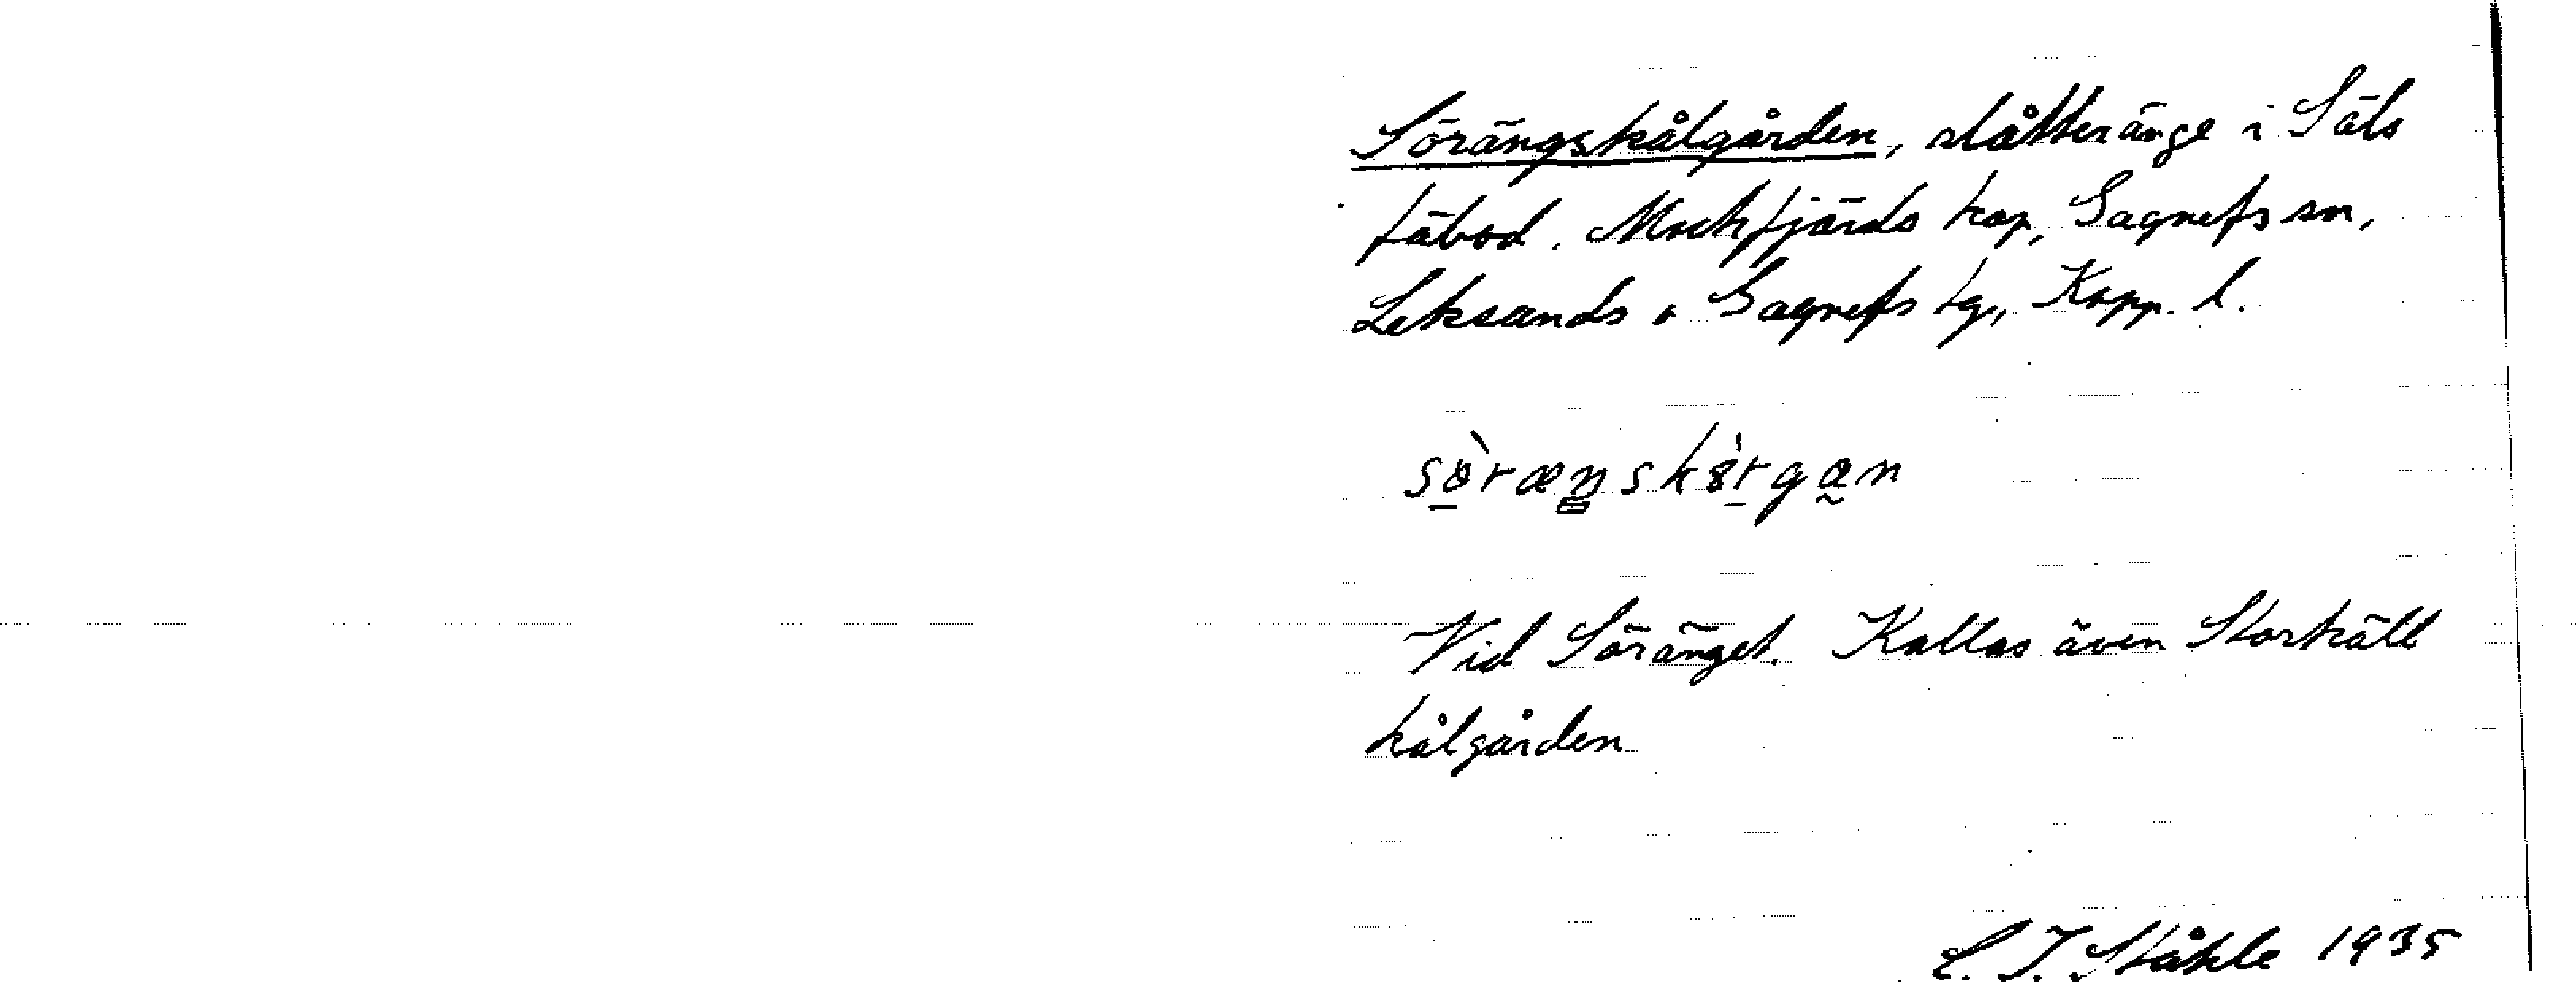 Sörängskålgården, slåtteränge i Säls
fäbod. Mockfjärds kap, Gagnefs sn,
Leksands o Gagnefs tg, Kopp. l.
Vid Söränget. Kallas även Storkäll
kålgården
C. I. Ståhle 1935